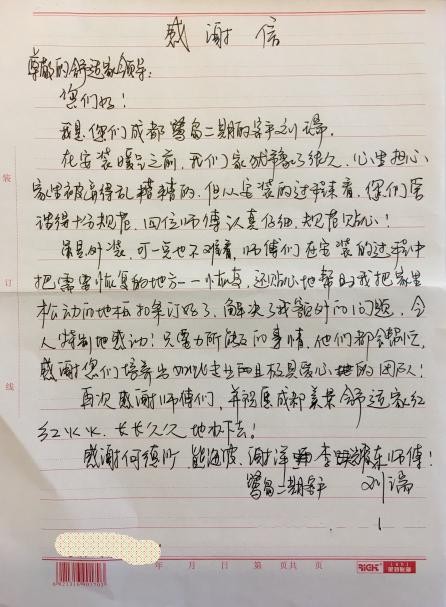 感谢信
尊敬的舒适家领导：
您们好！
我是您们成都鹭岛二期的客户刘瑞。
在安装暖气之前，我们家犹豫了很久，心里担心
家里被弄得乱糟糟的，但从安装的过程来看，您们严
谨得十分规范，四位师傅认真仔细，规范贴心！
虽是外装，可一点也不难看，师傅们在安装的过程中
把需要恢复的地方一一恢复，还贴心地帮助我把家里
松动的地板扣条订好了，解决了我额外的问题，令
人特别地感动！只要力所能及的事情，他们都会帮忙，
感谢您们培养出如此专业而且极具爱心的团队！
再次感谢师傅们，并祝愿成都美景舒适家红
红火火、长长久久地办下去！
感谢何德所 熊海波 谢泽 李 东师傅！
鹭岛二期客户 刘瑞
装
订
线
年 月 日 第 页共 页
6921316901703